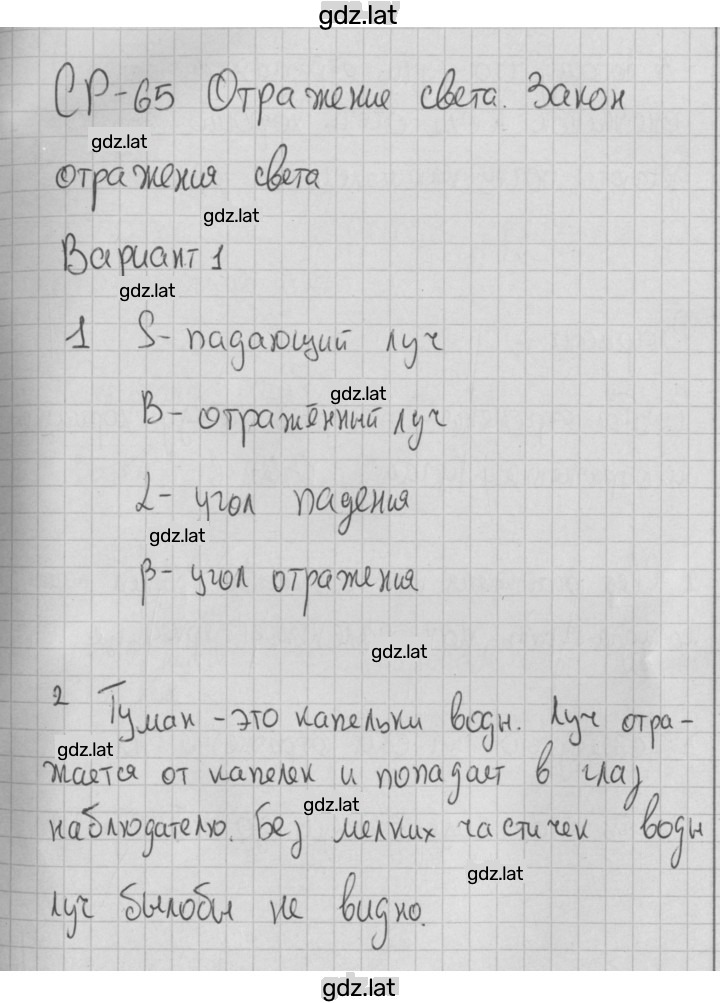 gdz.lat
СР-65 Отражение света. Закон
gdz.lat
отражения света
gdz.lat
Вариант 1
gdz.lat
1 S- падающий луч
gdz.lat
В- отражённый луч
α- угол падения
gdz.lat
β- угол отражения
gdz.lat
2 Туман - это капельки воды. Луч отра-
gdz.lat
жается от капелек и попадает в глаз
gdz.lat
наблюдателю. Без мелких частичек воды
gdz.lat
луч былобы не видно.
gdz.lat